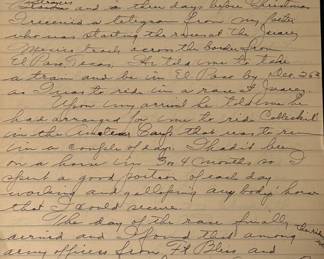 and so three days before Christmas
I received a telegram from my father
who was starting the races at the Juarez
Mexico track across the border from
El Paso Texas. He told me to take
a train and be in El Paso by Dec. 26th
as I was to ride in a race at Juarez.
Upon my arrival he told me he
had arranged for me to ride
in the Amateur that was to run
in a couple of days. I hadn't been
on a horse in 3 or 4 months so I
spent a good portion of each day
working and galloping any body's horse
that I could secure.
The day of the race finally
arrived and I found that among
army officers from Ft. Bliss and